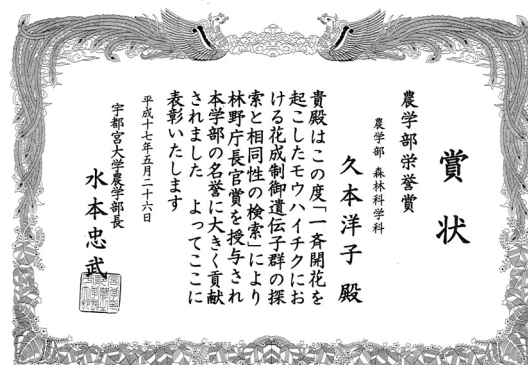 賞状
農学部栄誉賞
農学部 森林科学科
久本洋子 殿
貴殿はこの度「一斉開花を
起こしたモウハイチクにお
ける花成制御遺伝子群の探
索と相同性の検索」により
林野庁長官賞を授与され
本学部の名誉に大きく貢献
されました よってここに
表彰いたします
平成十七年五月二十六日
宇都宮大学農学部長
水本忠武